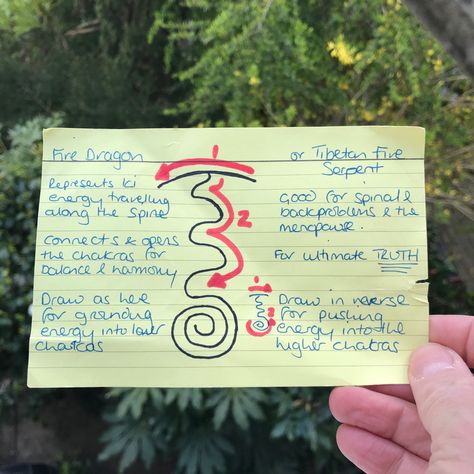 Fire Dragon
Represents ki
energy travelling
along the Spine
connects & opens
the chakras for
balance & harmony
Draw as here
for grounding
energy into lower
chakras
1
2
or Tibetan Fire
Serpent
Good for spinal &
backproblems & the
menopause.
For ultimate TRUTH
1
2
Draw in reverse
for pushing
energy into the
higher chakras